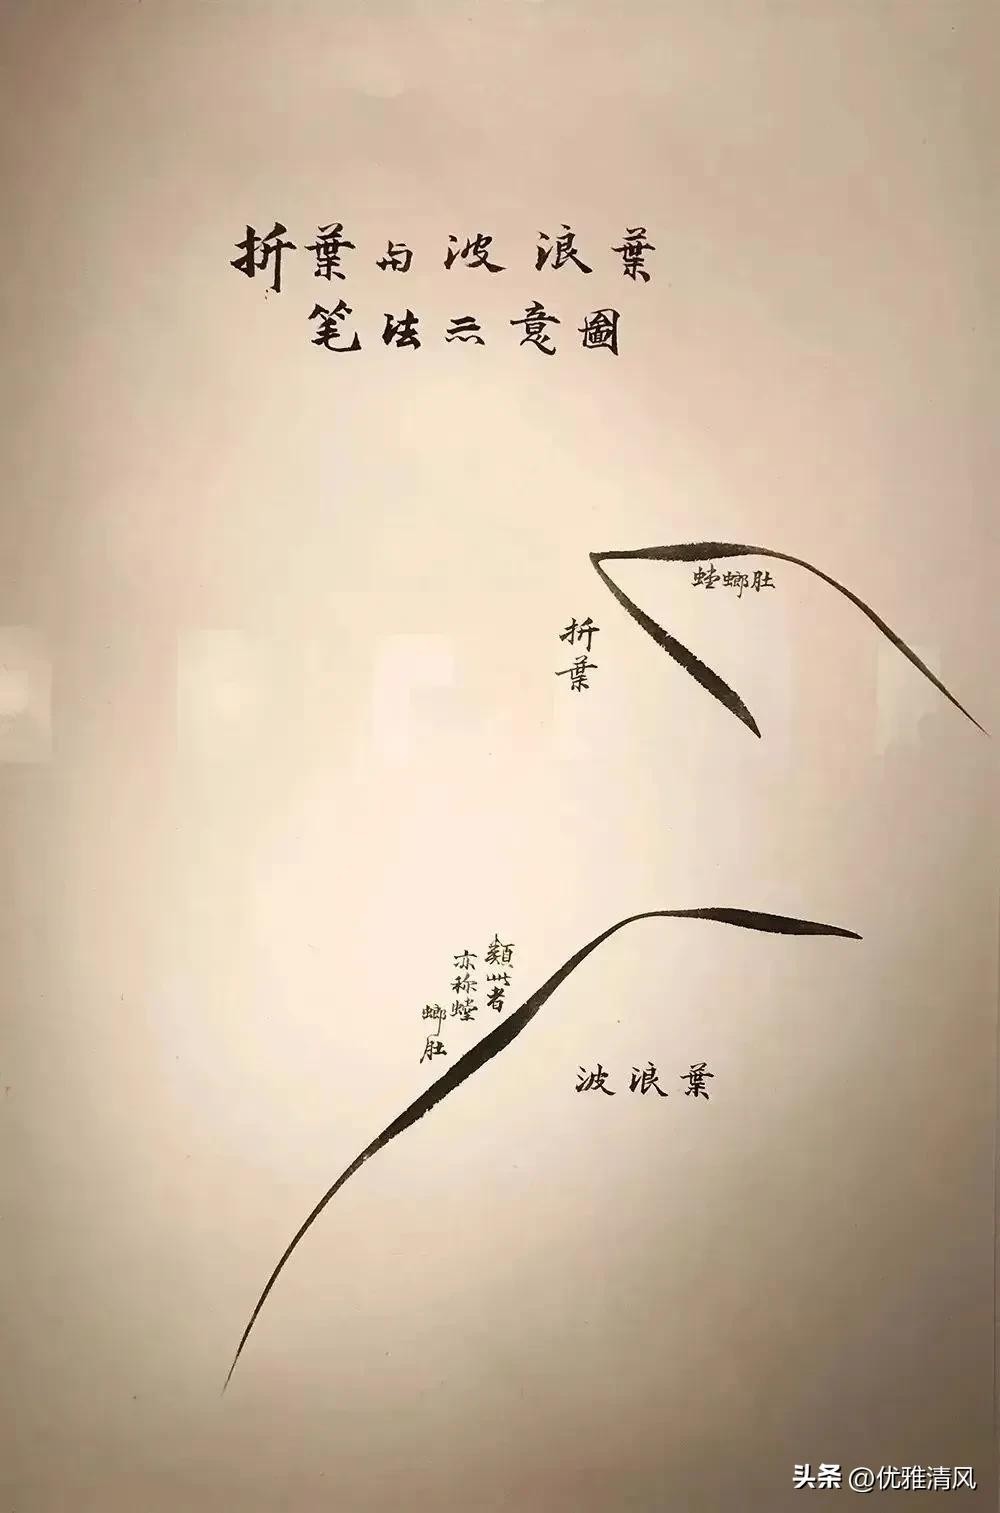 折葉与波浪葉
笔法示意圖
螳螂肚
折葉
類此者
亦称螳
螂肚
波浪葉
头条 @优雅清风